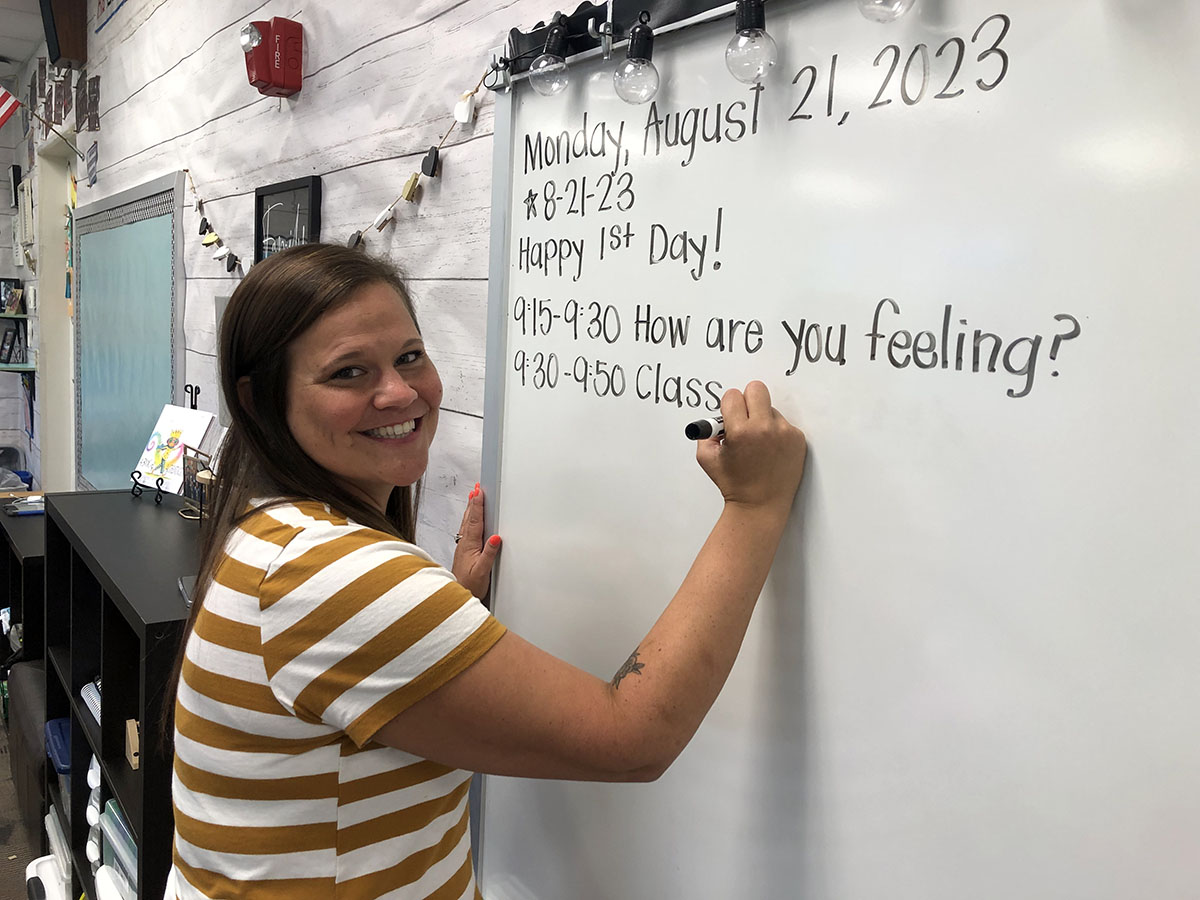 FIRE
Monday, August 21, 2023
☆8-21-23
Happy 1st Day!
9:15-9:30 How are you feeling?
9:30-9:50 Class